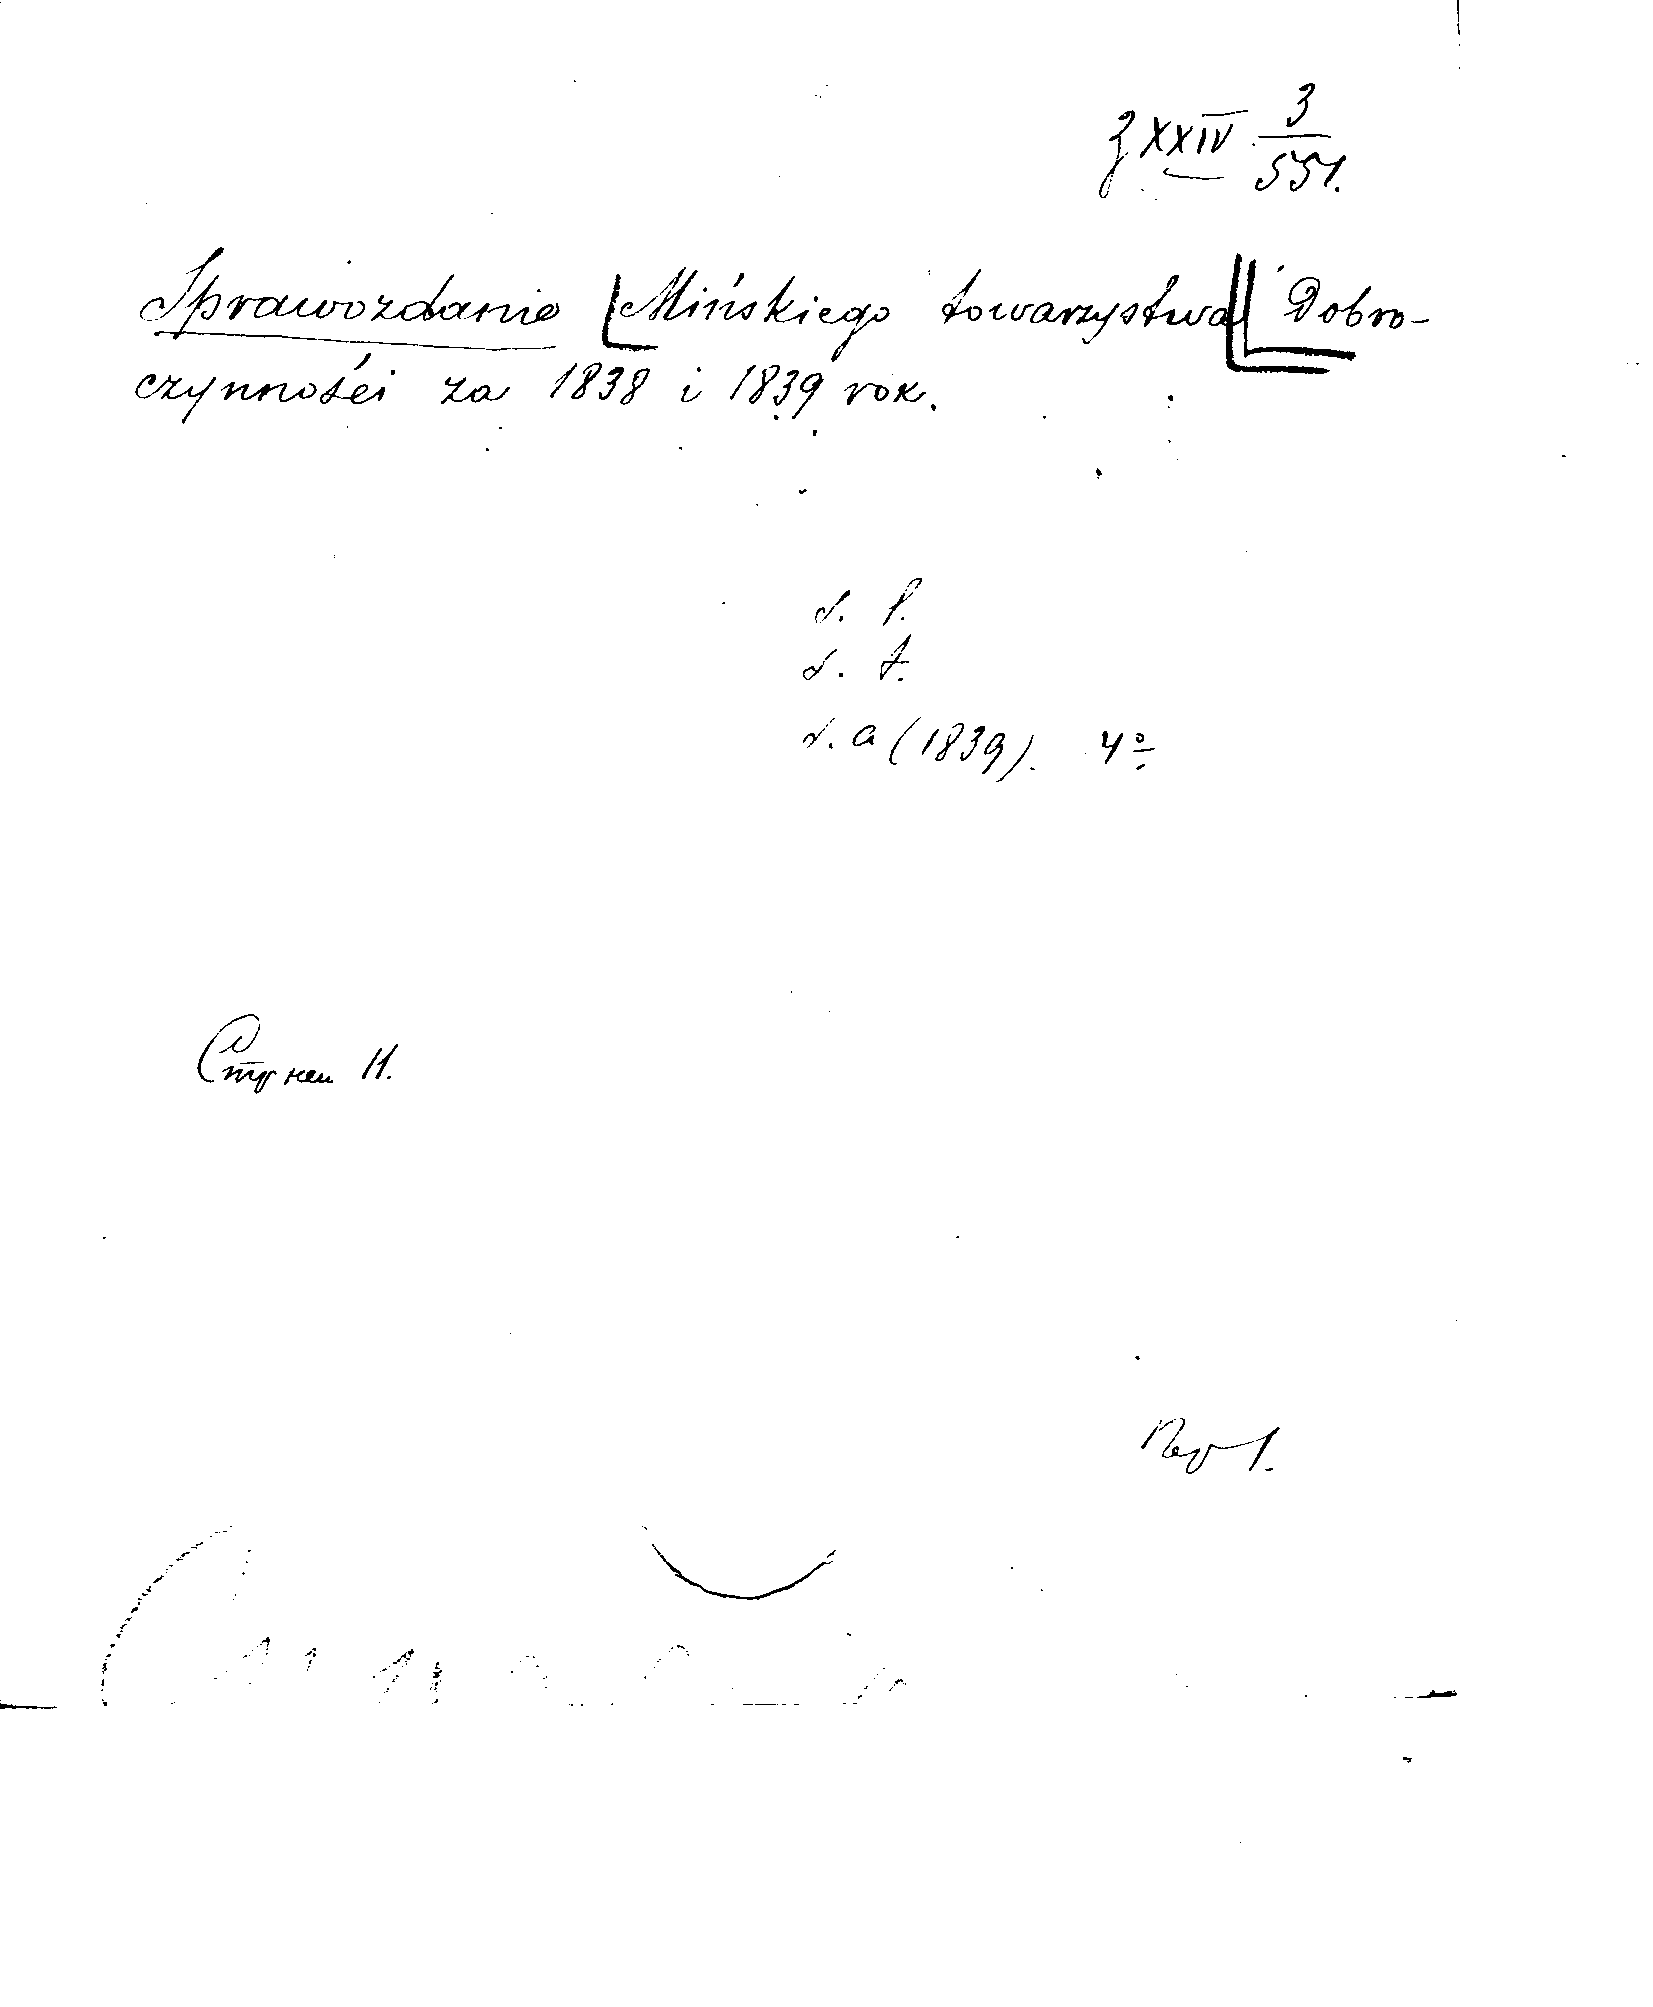 З XXIV 3/551.
Sprawozdanie Mińskiego towarzystwa Dobro-
czynności za 1838 i 1839 rok.
s. l.
s. t.
s. a (1839). 4º
11.